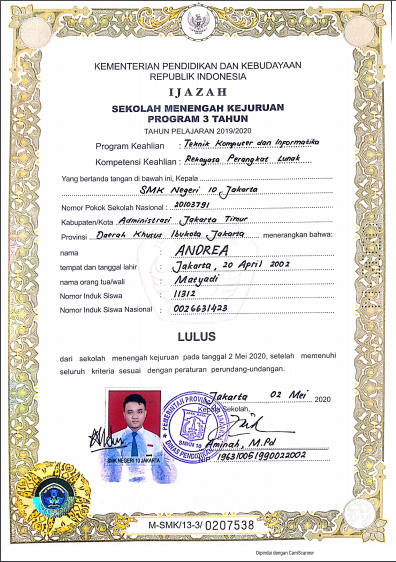 KEMENTERIAN PENDIDIKAN DAN KEBUDAYAAN
REPUBLIK INDONESIA
IJAZAH
SEKOLAH MENENGAH KEJURUAN
PROGRAM 3 TAHUN
TAHUN PELAJARAN 2019/2020
Program Keahlian : Teknik Komputer dan Informatika
Kompetensi Keahlian : Rekayasa Perangkat Lunak
Yang bertanda tangan di bawah ini, Kepala
SMK Negeri 10 Jakarta
Nomor Pokok Sekolah Nasional : 20103791
Kabupaten/Kota Administrasi Jakarta Timur
Provinsi Daerah Khusus Ibukota Jakarta menerangkan bahwa:
nama : ANDREA
tempat dan tanggal lahir : Jakarta, 20 April 2002
nama orang tua/wali : Matyadi
Nomor Induk Siswa : 11312
Nomor Induk Siswa Nasional : 0026631423
LULUS
dari sekolah menengah kejuruan pada tanggal 2 Mei 2020, setelah memenuhi
seluruh kriteria sesuai dengan peraturan perundang-undangan.
Jakarta 02 Mei 2020
Kepala Sekolah,
PEMERINTAH PROVINSI
SMKN 10
DINAS PENDIDIKAN
Aminah, M.Pd
NIP 196310051990022002
SMK NEGERI 10 JAKARTA
M-SMK/13-3/ 0207538
Dipindai dengan CamScanner